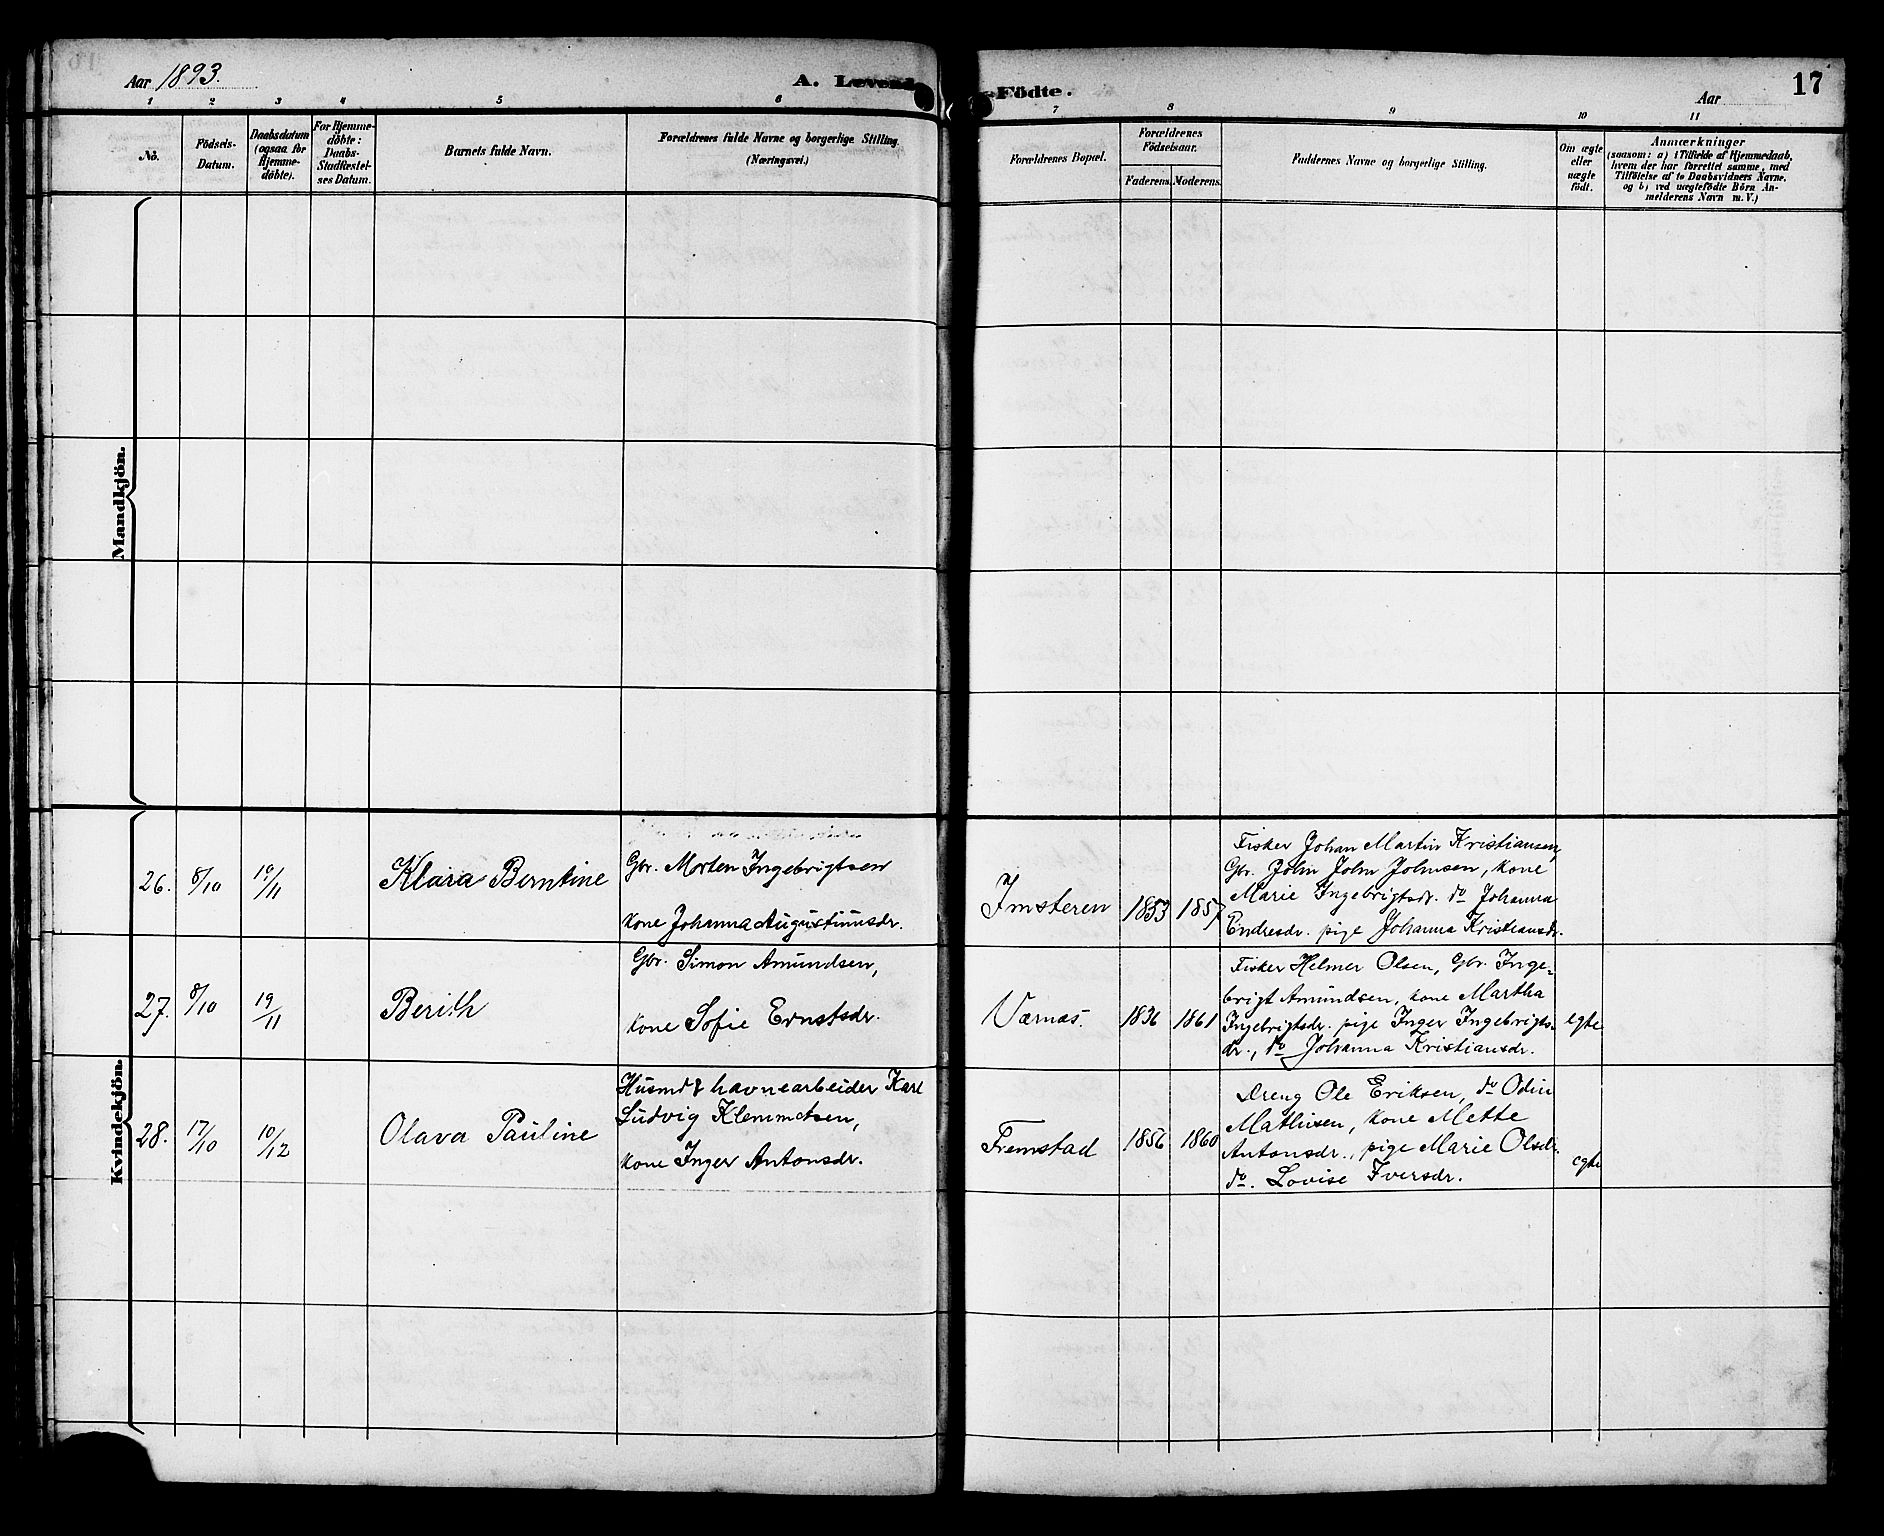 Aar 1893.
A. Levende Födte.
Aar
17
1 2 3 4 5 6 7 8 9 10 11
No.
Födsels-
Datum.
Daabsdatum
(ogsaa for
Hjemme-
döbte).
For Hjemme-
döbte:
Daabs-
Stadfæstel-
ses Datum.
Barnets fulde Navn.
Forældrenes fulde Navne og borgerlige Stilling.
(Næringsvei.)
Forældrenes Bopæl.
Forældrenes
Födselsaar.
Faderens. Moderens.
Faddernes Navne og borgerlige Stilling.
Om ægte
eller
uægte
födt.
Anmærkninger
(saasom: a) i Tilfælde af Hjemmedaab,
hvem der har forrettet samme, med
Tilföielse af to Daabsvidners Navne,
og b) ved uægtefödte Börn An-
melderens Navn m. V.)
Mandkjön.
Kvindekjön.
26. 8/10 19/11 Klara Berntine
Gbr. Morten Ingebrigtsen
kone Johanna Augustinusdr.
Imsteren 1853 1857
Fisker Johan Martin Kristiansen,
Gbr. John John Johnsen, kone
Marie Ingebrigtsdr. do Johanna
Endresdr. pige Johanna Kristiansdr.
27. 8/10 19/11 Berith
Gbr. Simon Amundsen,
kone Sofie Ernstsdr.
Værnæs. 1836 1861
Fisker Helmer Olsen, Gbr. Inge-
brigt Amundsen, kone Martha
Ingebrigtsdr. pige Inger Ingebrigts-
dr., do Johanna Kristiansdr.
egte
28. 17/10 10/12 Olava Pauline
Husmd & havnearbeider Karl
Ludvig Klemmetsen,
kone Inger Antonsdr.
Fremstad 1856 1860
Dreng Ole Eriksen, do Odin
Mathisen, kone Mette
Antonsdr., pige Marie Olsdr.
do. Lovise Iversdr.
egte